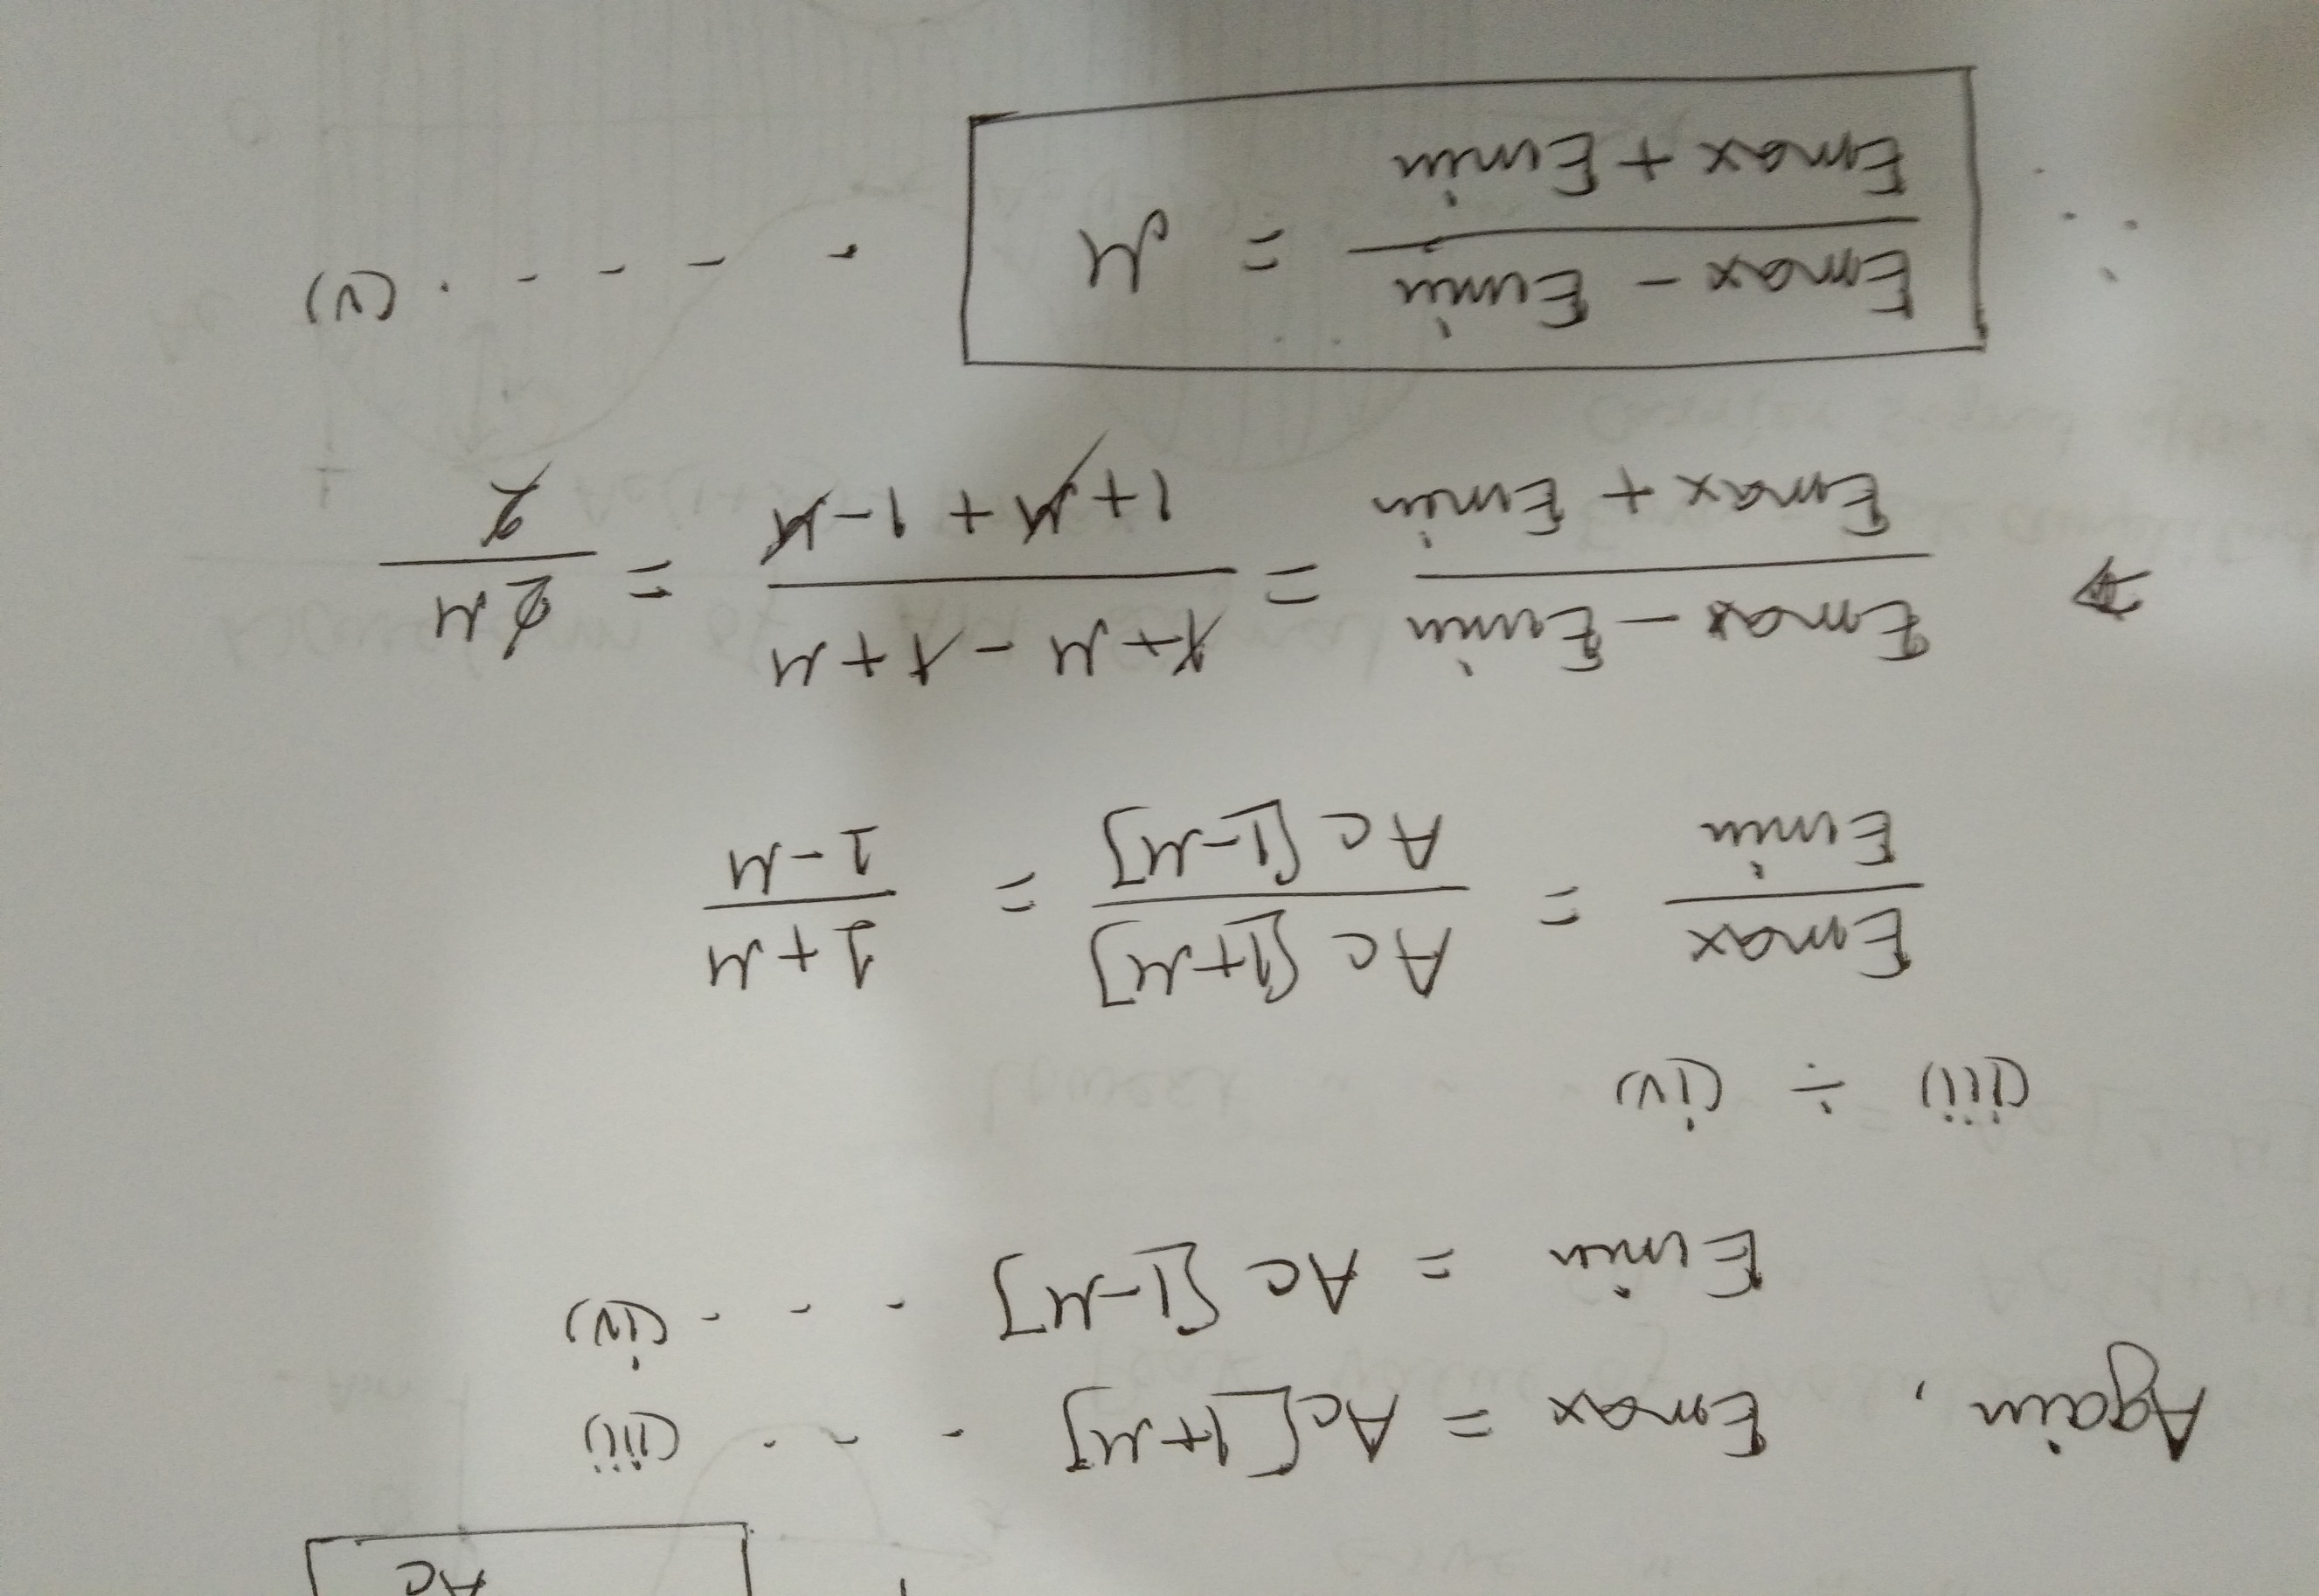 Ac
Again, Emax = Ac[1+μ] - - - (iii)
Emin = Ac[1-μ] - - - (iv)
(iii) ÷ (iv)
Emax / Emin = Ac[1+μ] / Ac[1-μ] = 1+μ / 1-μ
⇒ Emax - Emin / Emax + Emin = 1+μ-1+μ / 1+μ+1-μ = 2μ / 2
∴ Emax - Emin / Emax + Emin = μ - - - - - (v)